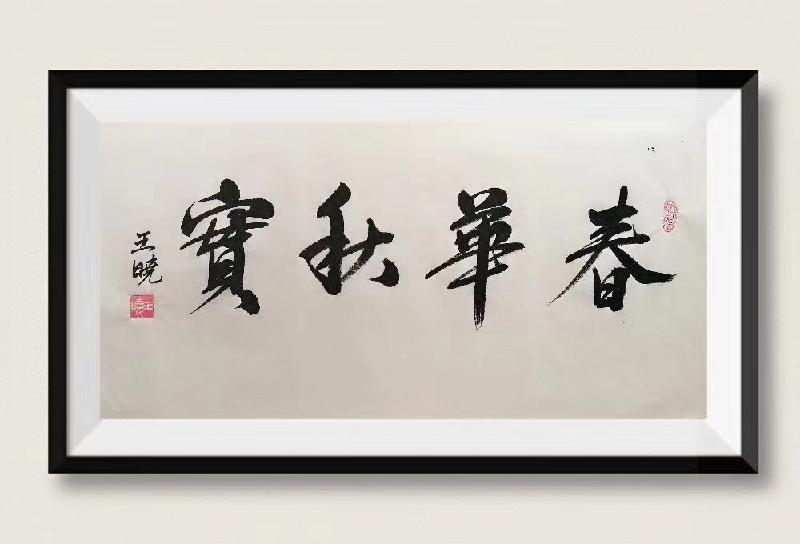 春華秋實
王晓